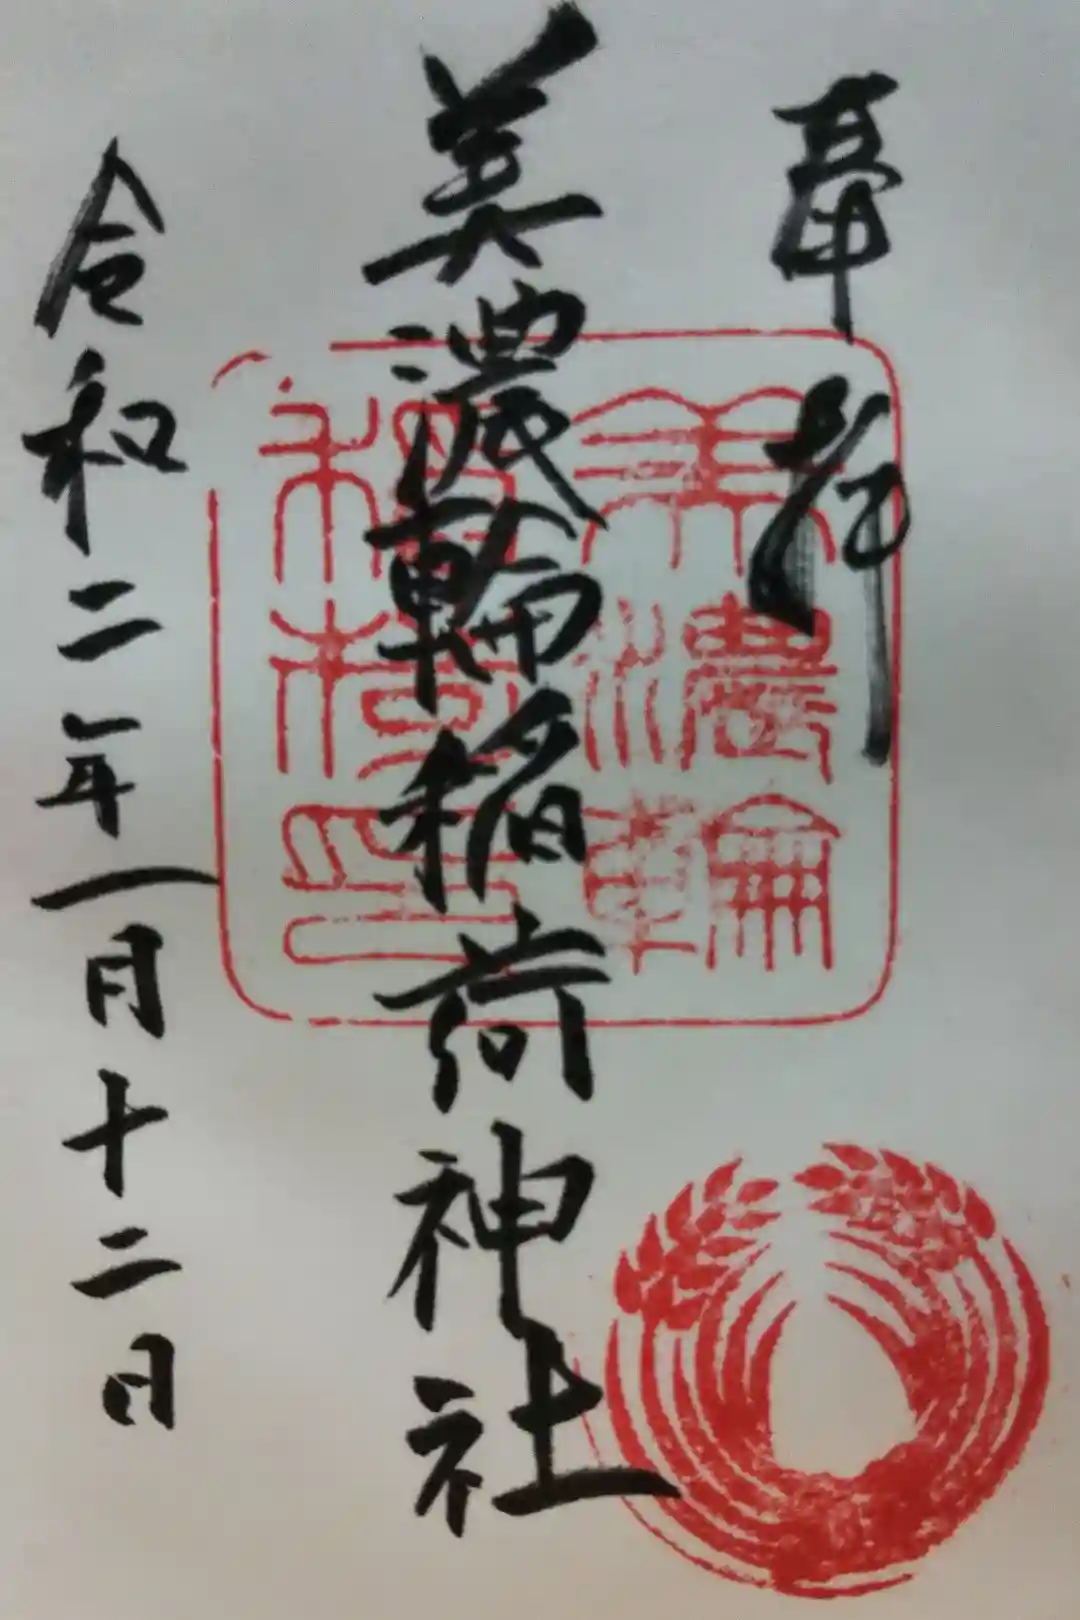 奉拝
美濃輪稲荷神社
令和二年一月十二日
美濃輪
稲荷印